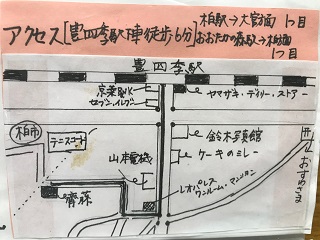 アクセス[豊四季駅 徒歩6分]
柏駅→大宮方面 1つ目
おおたかの森駅→柏方面
1つ目
豊四季駅
京葉BK
セブンイレブン
ヤマザキ・デイリー・ストアー
柏市
テニスコート
鈴木写真館
ケーキのミレー
山本電機
レオパレス
ワンルーム・マンション
齊藤
おすめさま